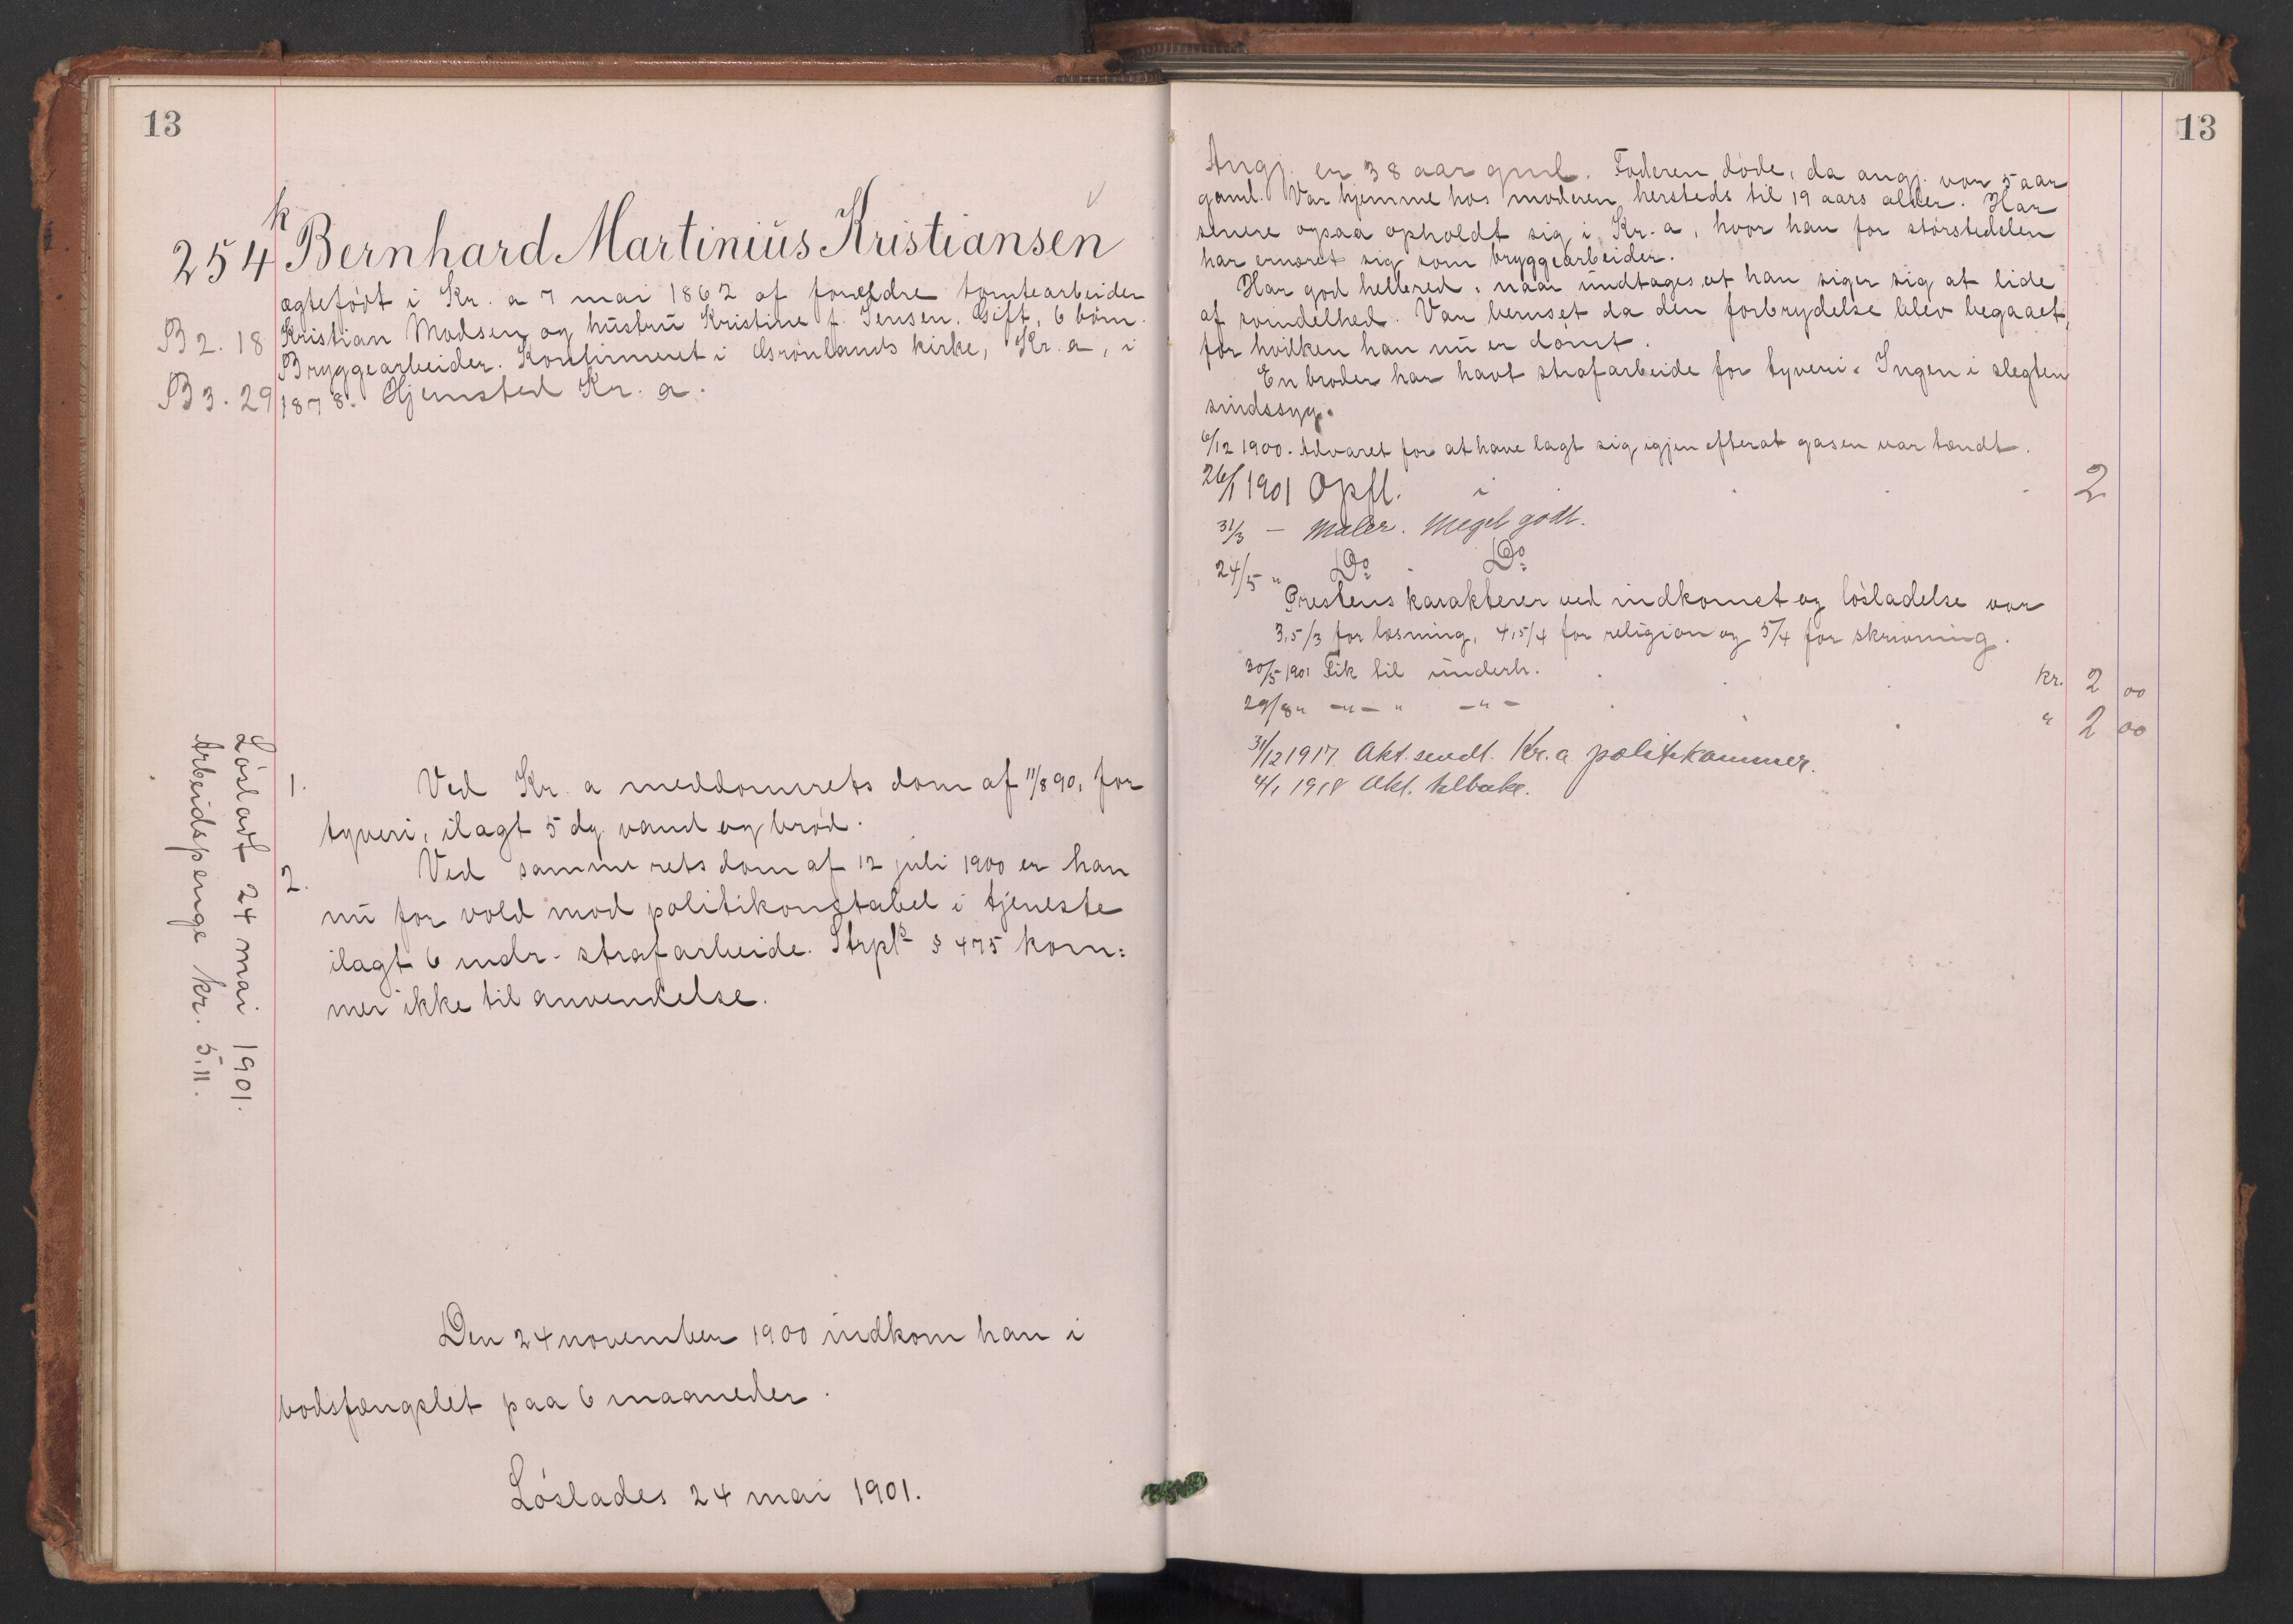 13
k
254 Bernhard Martinius Kristiansen
ægtefødt i Kr. a 7 mai 1862 af forældre tomtearbeider
B 2. 18 Kristian Madsen og hustru Kristine f. Jensen. Gift, 6 børn.
Bryggearbeider. Konfirmeret i Grønlands kirke, Kr. a, i
B 3. 29 1878. Hjemsted Kr. a.
1. Ved Kr. a meddomsrets dom af 11/8 90, for
tyveri, ilagt 5 dg. vand og brød.
2. Ved samme rets dom af 12 juli 1900 er han
nu for vold mod politikonstabel i tjeneste
ilagt 6 mdr. strafarbeide. Strpl § 475 kom:
mer ikke til anvendelse.
Løsladt 24 mai 1901.
Arbeidspenge kr. 5.11.
Den 24 november 1900 indkom han i
bodsfængslet paa 6 maaneder.
Løslades 24 mai 1901.
13
Angj. er 38 aar gml. Faderen døde, da angj. var 5 aar
gaml. Var hjemme hos moderen hersteds til 19 aars alder. Har
senere ogsaa opholdt sig i Kr. a, hvor han for størstedelen
har ernæret sig som bryggearbeider.
Har god helbred, naar undtages, at han siger sig at lide
af svindelhed. Var beruset da den forbrydelse blev begaaet,
for hvilken han nu er dømt.
En broder har havt strafarbeide for tyveri. Ingen i slegten
sindssyg.
6/12 1900. Advaret for at have lagt sig igjen efterat gasen var tændt.
26/1 1901 Opfl. i 2
31/3 — Maler. Meget godt.
24/5 " Do. Do.
Prestens karakterer ved indkomst og løsladelse var
3,5/3 for læsning, 4,5/4 for religion og 5/4 for skrivning.
30/5 1901 Fik til underh. kr. 2 00
29/8 " — " — " — " — " 2 00
31/12 1917. Akt. sendt. Kr. a politikammer.
4/1 1918 Akt. tilbake.